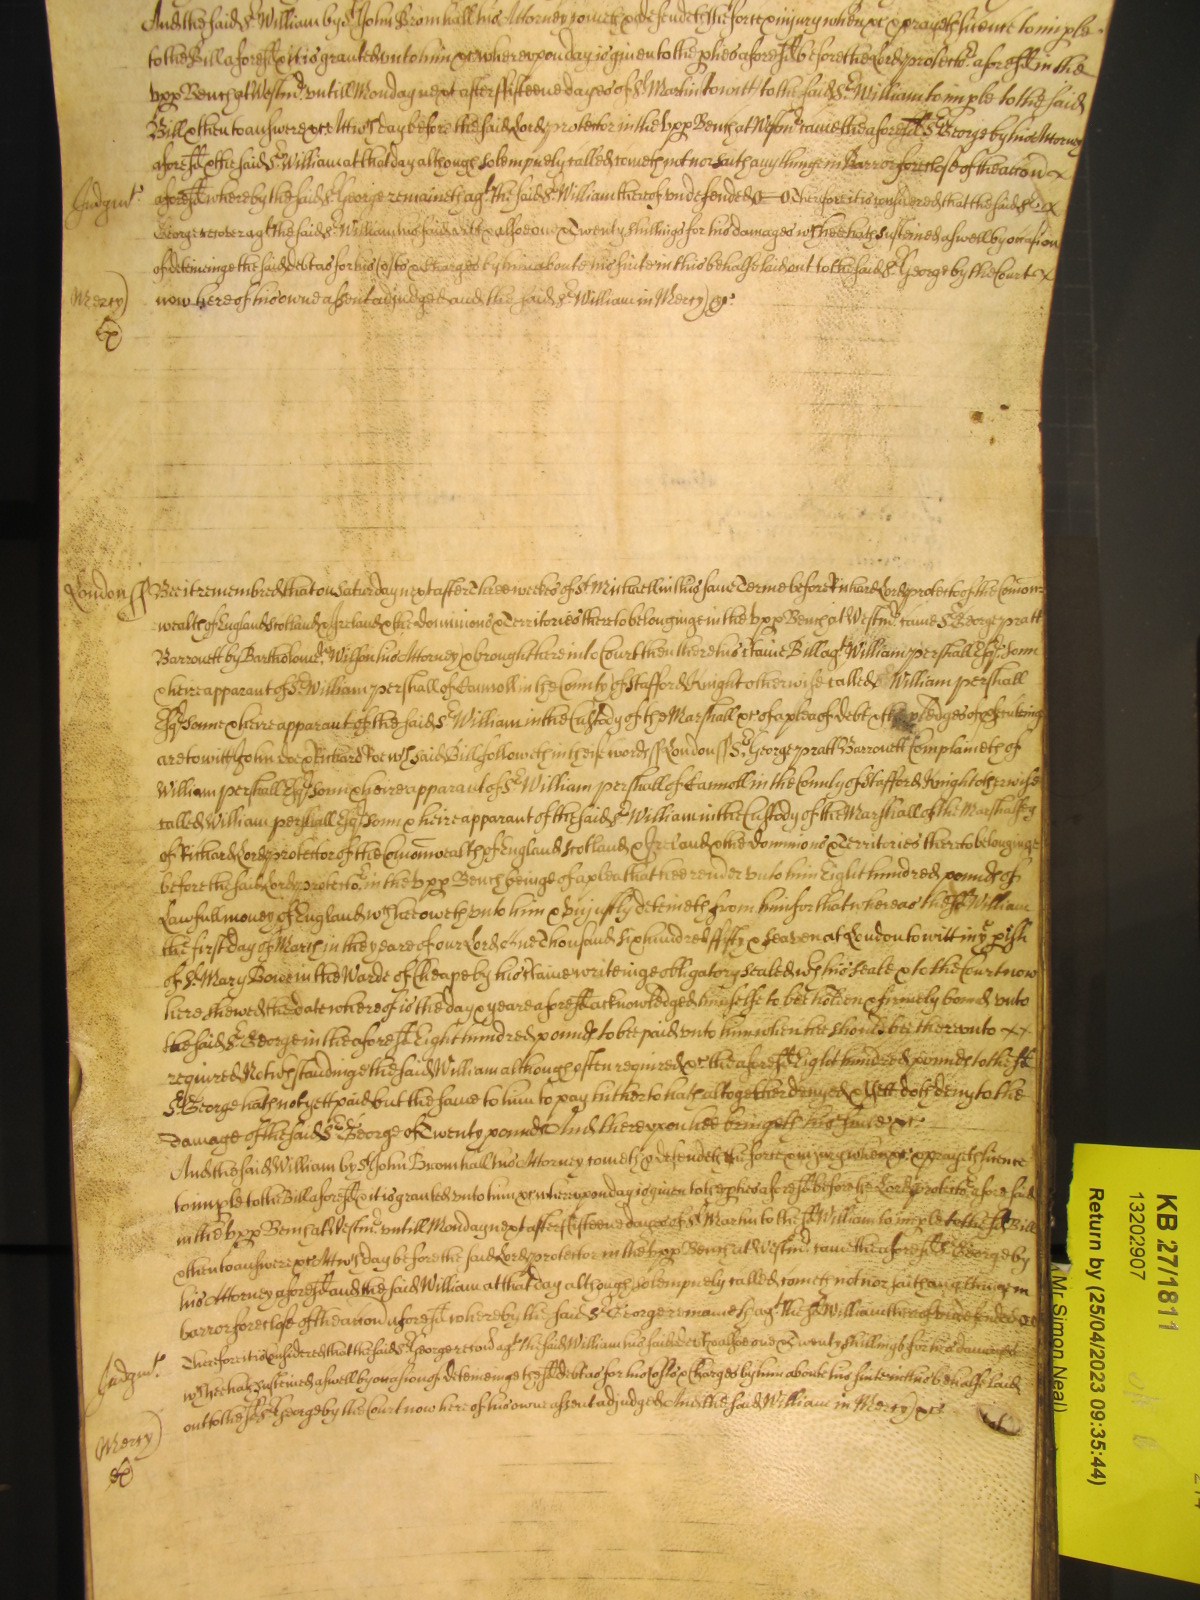 And the said Sr William by Sr John Bromhall his Attorney cometh & defendeth the force & iniury when &c & prayeth licence to imple
to the Bill aforesd & it is granted unto him &c whereupon day is given to the pties aforesd before the Lord protector aforesd in the
vpp Bench at Westmr untill Monday next after fifteene dayes of St Martin to witt to the said Sr William to imple to the said
Bill & then to answere &c Att wch day before the said Lord protector in the vpp Bench at Westmr came the aforesd Sr George by his Attorney
aforesd & the said Sr William at that day although solempnely called cometh not nor saith any thinge in Barr or foreclose of the accon
aforesd whereby the said Sr George remaineth agt the said Sr William thereof undefended Therefore it is considered that the said Sr
Judgmt
George recover agt the said Sr William his said debt & alsoe one & Twenty shillings for his damages wch hee hath susteined aswell by occasion
of deteineinge the said debt as for his Costs & Charges by him about his suite in this behalfe laid out to the said Sr George by the Court
now here of his owne assent adjudged and the said Sr William in Mercy &c
Mercy
London ss Bee it remembred that on Saturday next after Three weekes of St Michaell in this same Terme before Richard Lord protector of the Comon
wealth of England Scotland & Ireland & the dominions & Territories thereto belonginge in the vpp Bench at Westmr came Sr George pratt
Barronett by Bartholomew Wilson his Attorney & brought here into Court then there his certaine Bill agt William pershall Esqr sonn
& heire apparant of Sr William pershall of Cannoll in the County of Stafford Knight otherwise called William pershall
Esqr Sonne & heire apparant of the said Sr William in the Custody of the Marshall &c of a plea of debt & the pledges of prosecuteing
are to witt John doe & Richard Roe wch said Bill followeth in these words ss London ss Sr George pratt Barronett Complaineth of
William pershall Esqr sonn & heire apparant of Sr William pershall of Cannoll in the County of Stafford Knight otherwise
called William pershall Esqr sonn & heire apparant of the said Sr William in the Custody of the Marshall of the Marshalsey
of Richard Lord protector of the Comonwealth of England Scotland & Ireland & the dominions & Territories thereto belonginge
before the said Lord protector in the vpp Bench beinge of a plea that hee render unto him Eight hundred pounds of
Lawfull money of England wch hee oweth unto him & Uniustly deteineth from him for that whereas the sd William
the first day of March in the yeare of our Lord one Thousand six hundred fifty & seaven at London to witt in ye pish
of St Mary Bowe in the Warde of Cheape by his certaine writeinge obligatory sealed wth his seale & to the Court now
here shewed the date whereof is the day & yeare aforesd acknowledged himselfe to bee holden & firmely bound unto
the said Sr George in the aforesd Eight hundred pounds to bee paid unto him when hee should bee thereunto
required Notwthstandinge the said William although often required &c the aforesd Eight hundred pounds to the sd
Sr George hath not yett paid but the same to him to pay hitherto hath altogether denyed & Yett doth deny to the
damage of the said Sr George of Twenty pounds And thereupon hee bringeth his suite &c
And the said William by Sr John Bromhall his Attorney cometh & defendeth the force & iniury when &c & prayeth licence
to imple to the Bill aforesd & it is granted unto him &c whereupon day is given to the pties aforesd before the Lord protector aforesaid
in the vpp Bench at Westmr untill Monday next after fifteene dayes of St Martin to the sd William to imple to the sd Bill
& then to answere &c Att wch day before the said Lord protector in the vpp Bench at Westmr came the aforesd Sr George by
his Attorney aforesd and the said William at that day although solempnely called cometh not nor saith any thinge in
barr or foreclose of the accon aforesd whereby the said Sr George remaineth agt the sd William thereof undefended
Judgmt
Therefore it is considered that the said Sr George recover agt the said William his said debt & alsoe one & Twenty shillings for his damages
wch hee hath susteined aswell by occasion of deteineinge the sd debt as for his Costs & Charges by him about his suite in this behalfe laid
out to the sd Sr George by the Court now here of his owne assent adjudged And the said William in Mercy &c
Mercy
KB 27/1811
13202907
Return by (25/04/2023 09:35:44)
Mr Simon Neal)